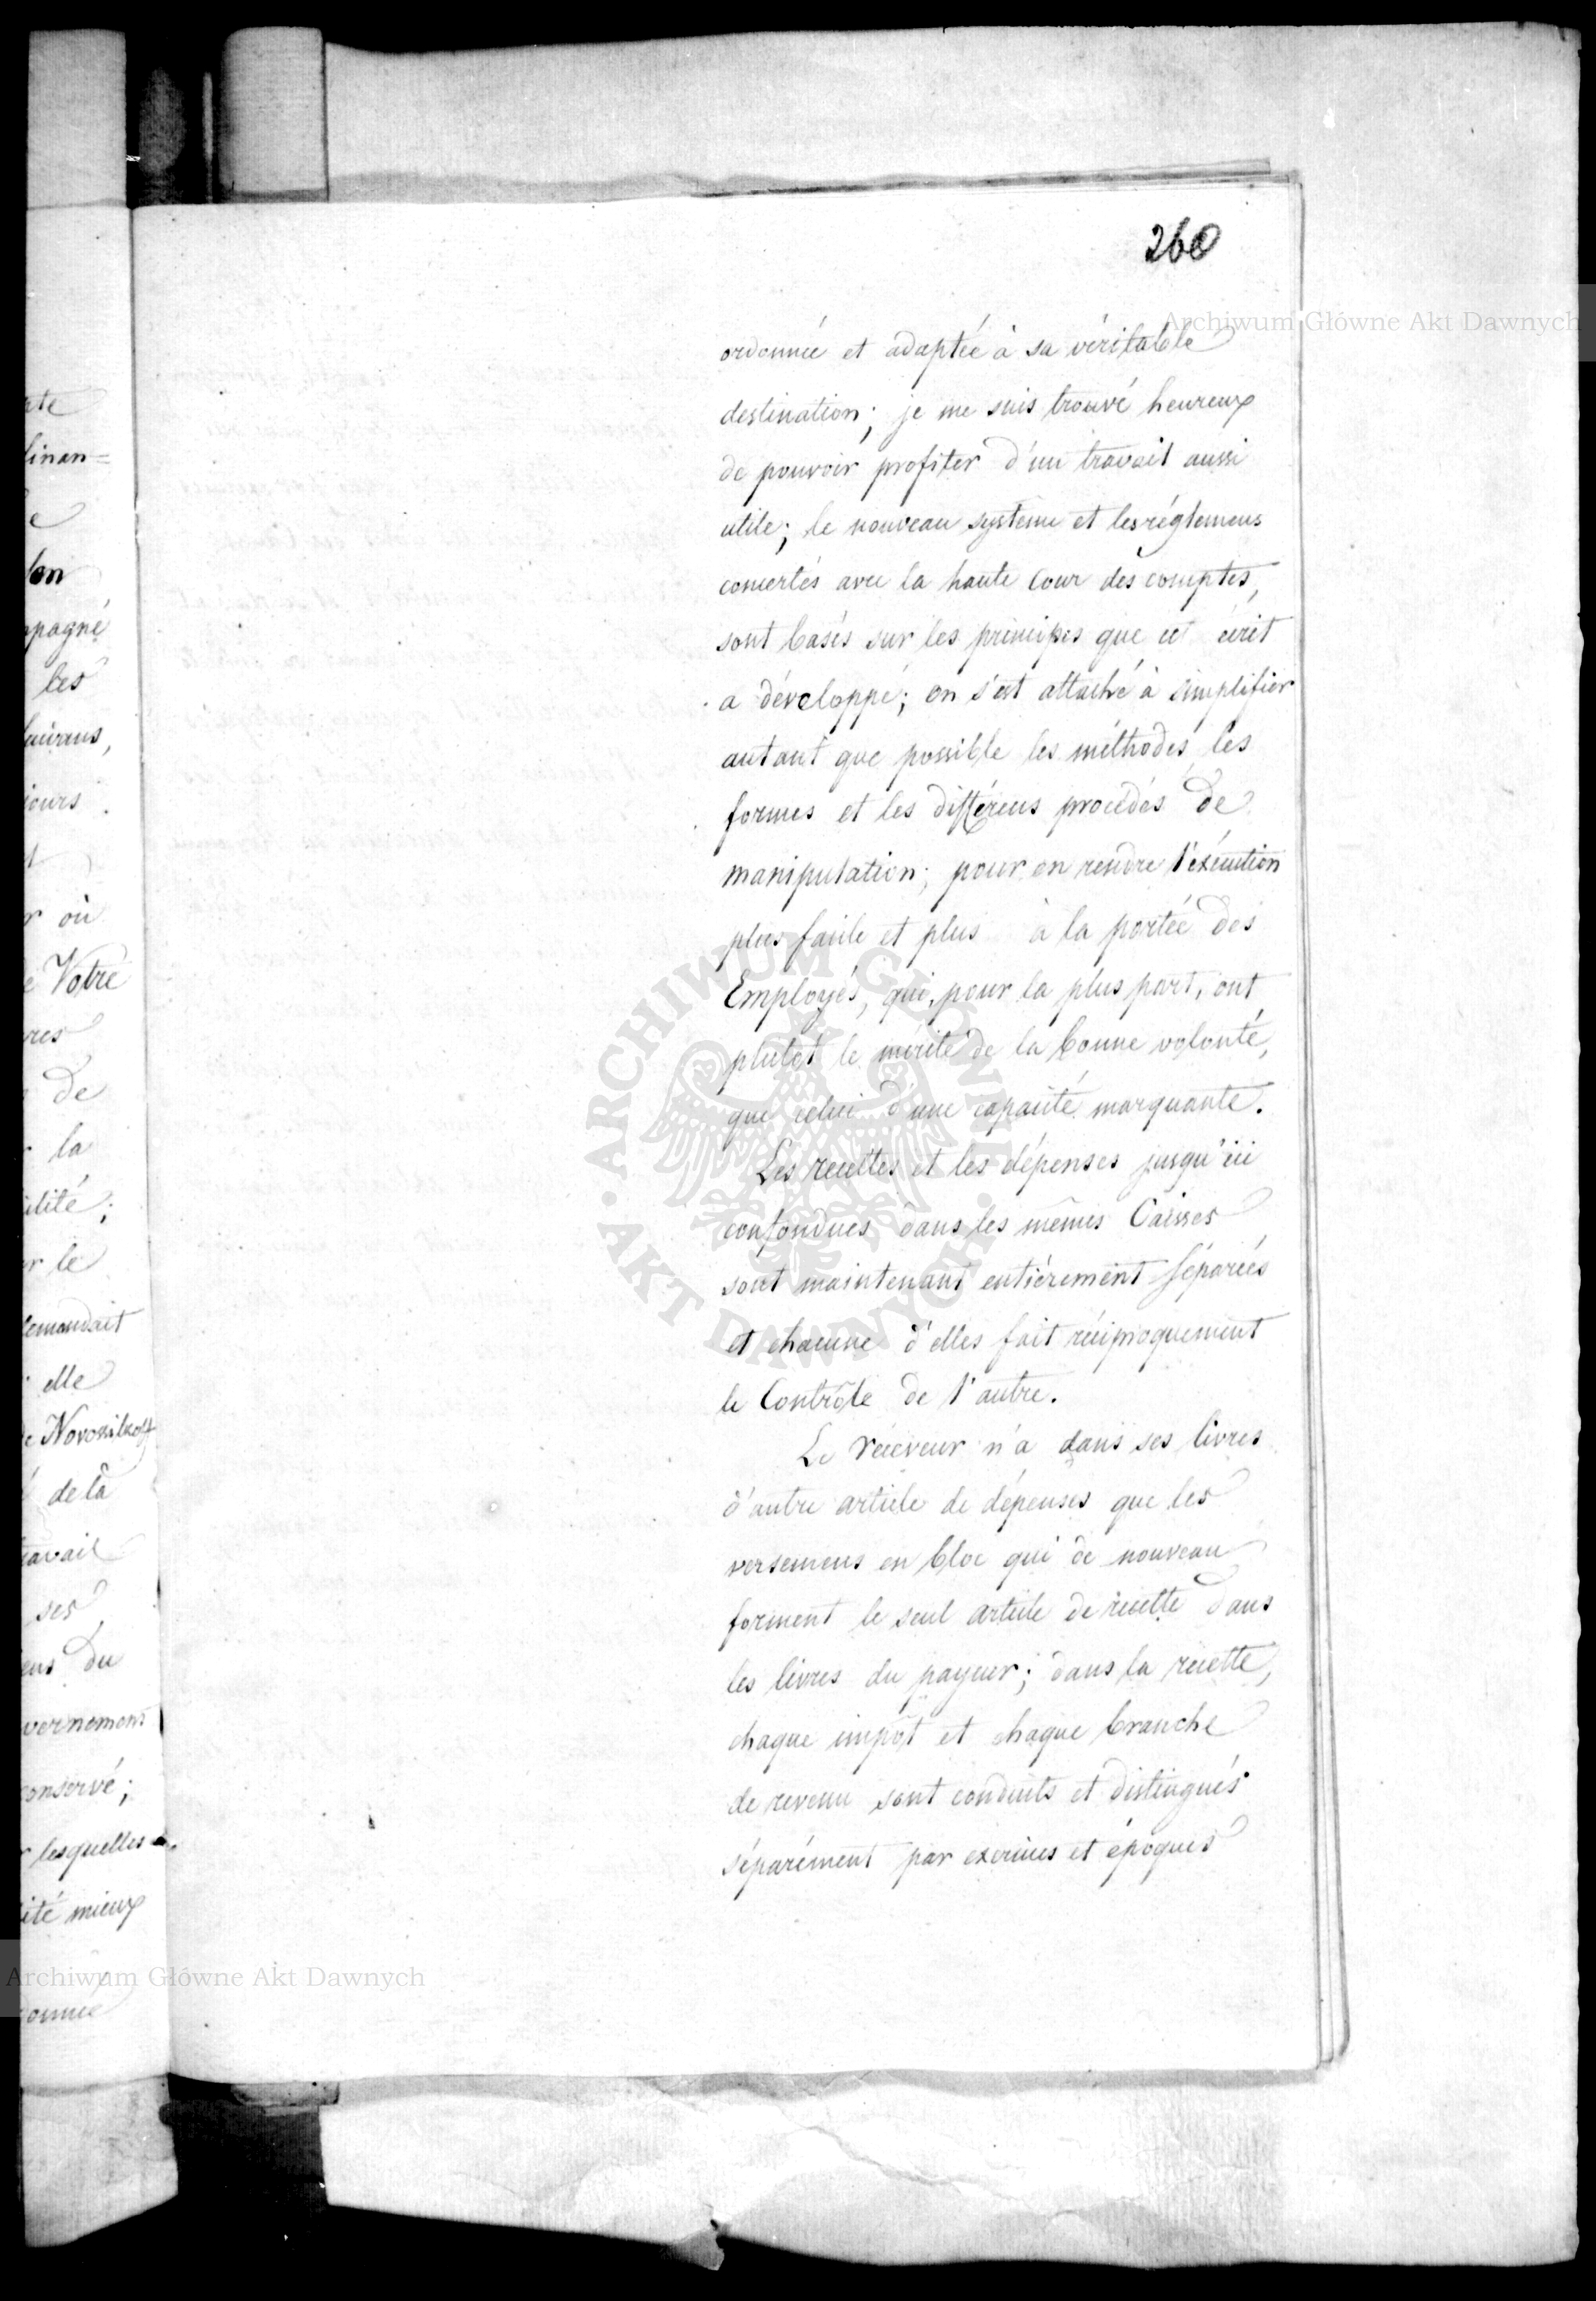 260
ordonnée et adaptée à sa véritable
destination; je me suis trouvé heureux
de pouvoir profiter d'un travail aussi
utile; le nouveau systeme et les réglemens
concertés avec la haute Cour des comptes,
sont basés sur les principes que cet écrit
a développé; on s'est attaché à simplifier
autant que possible les méthodes, les
formes et les différens procédés de
manipulation; pour en rendre l'exécution
plus facile et plus à la portée des
Employés, qui, pour la plus part, ont
plutot le mérite de la bonne volonté,
que celui d'une capacité marquante.
Les recettes et les dépenses jusqu'ici
confondues dans les mêmes Caisses
sont maintenant entiérement séparées
et chacune d'elles fait réciproquement
le Contrôle de l'autre.
Le receveur n'a dans ses livres
d'autre article de dépenses que les
versemens en bloc qui de nouveau
forment le seul article de recette dans
les livres du payeur; dans la recette,
chaque impôt et chaque branche
de revenu sont conduits et distingués
séparément par exercices et époques
Archiwum Główne Akt Dawnych
Archiwum Główne Akt Dawnych
ARCHIWUM GŁÓWNE · AKT DAWNYCH ·
les
où
Votre
de
la
le
elle
Novossilzoff
de la
ses
du
lesquelles
mieux